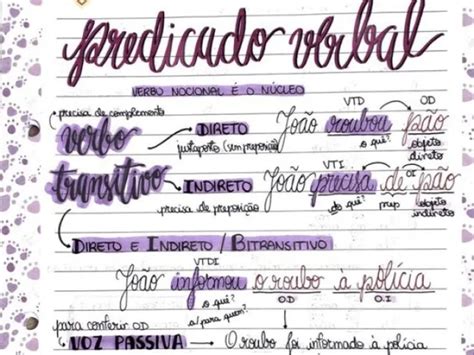 predicado verbal
VERBO NOCIONAL É O NÚCLEO
precisa de complemento
VTD OD
verbo DIRETO João roubou pão
justaposto (sem preposição) o quê? objeto direto
VTI OI
transitivo INDIRETO João precisa de pão
precisa de preposição do quê? prep objeto indireto
DIRETO E INDIRETO / BITRANSITIVO
VTDI
João informou o roubo à polícia
o quê? a/para quem? O.D O.I
para conferir OD
VOZ PASSIVA O roubo foi informado à polícia